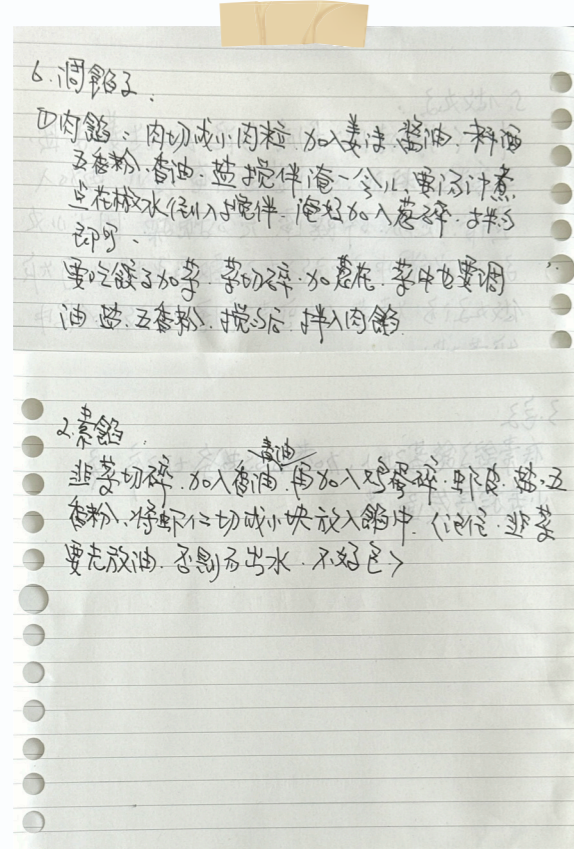 6.调馅子.
①肉馅 肉切成小肉粒.加入姜沫.酱油.料酒
五香粉.香油.盐搅伴淹一会儿.要汤汁煮
点花椒水倒入搅伴.淹好加入葱碎.拌匀
即可.
要吃饺子加菜.菜切碎.加葱花.菜中也要调
油.盐.五香粉.搅匀后拌入肉馅.
2.素馅.
青油
韭菜切碎.加入香油.再加入鸡蛋碎.虾皮.盐.五
香粉.将虾仁切成小块放入馅中.(记住.韭菜
要先放油.否则易出水.不好包)